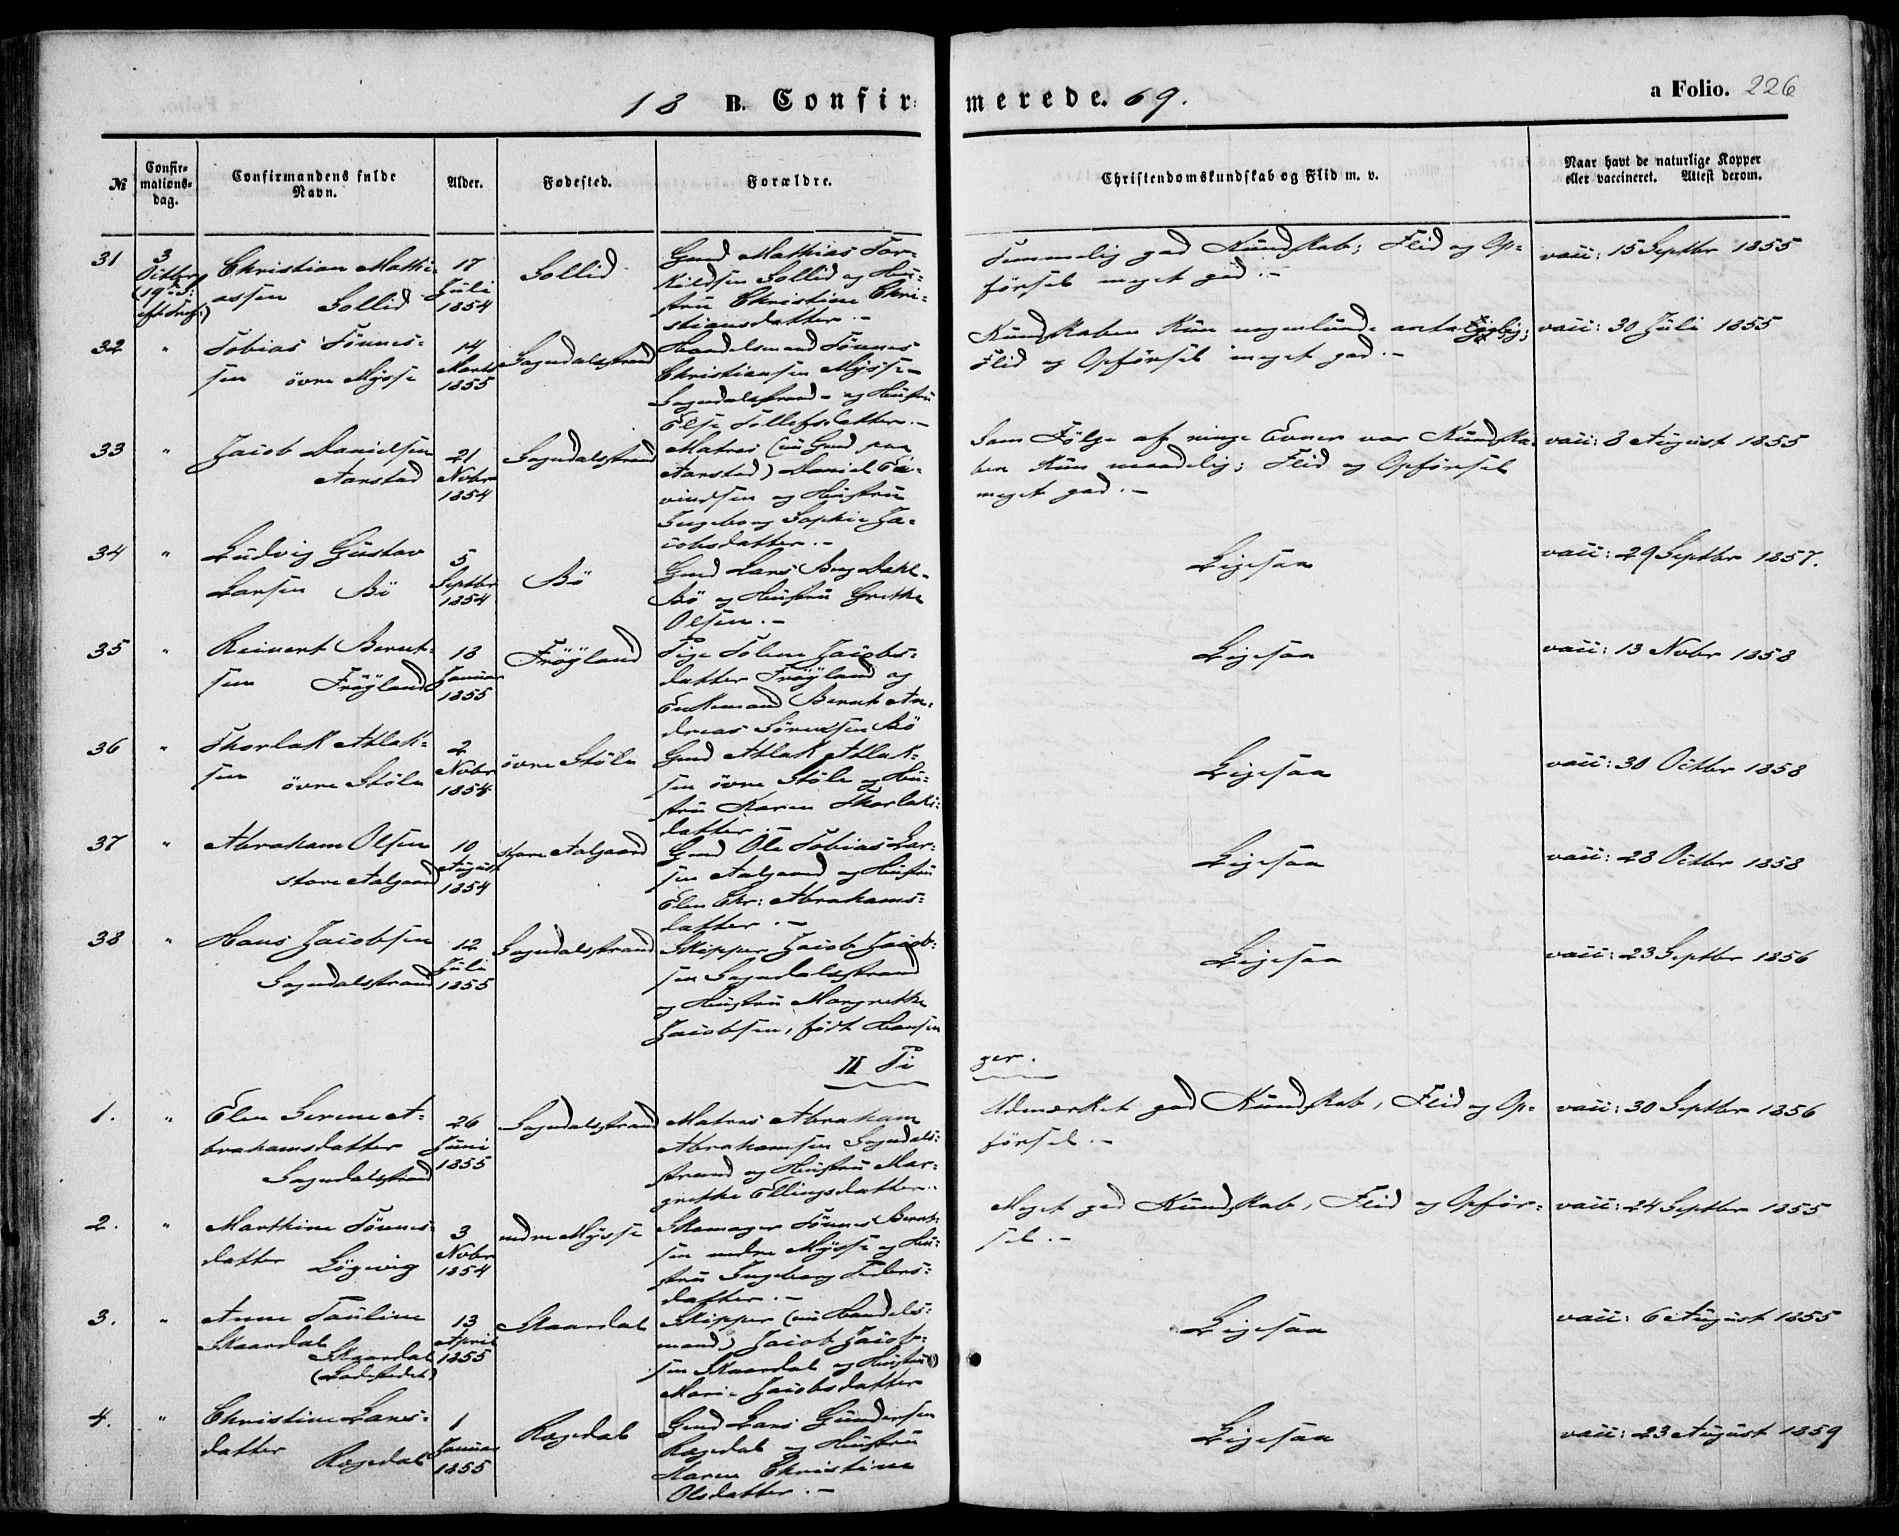 18 B. Confirmerede. 69.
a Folio. 226
№
Confirmations-dag.
Confirmandens fulde Navn.
Alder.
Fødested.
Forældre.
Christendomskundskab og Flid m. v.
Naar havt de naturlige Kopper eller vaccineret. Attest derom.
31
3 Octbr
(19 S: eft Tref:)
Christian Mathi-
assen Sollid
17 Juli 1854
Sollid
Gmd Mathias Tor-
kildsen Sollid og Hu-
stru Christine Chri-
stiansdatter.-
Temmelig god Kundskab; Flid og Op-
førsel meget god.-
vacc: 15 Septbr 1855
32 "
Tobias Tønnes-
sen øvre Mysse
14 Marts 1855
Sogndalstrand
Handelsmand Tønnes
Christiansen Mysse-
Sogndalstrand- og Hustru
Else Tollefsdatter.-
Kundskaben kun nogenlunde antagelig;
Flid og Opførsel meget god.-
vacc: 30 Juli 1855
33 "
Jacob Danielsen
Aarstad
21 Novbr 1854
Sogndalstrand
Matros (nu Gmd paa
Aarstad) Daniel Ei-
vindsen og Hustru
Ingeborg Sophie Ja-
cobsdatter.-
Som Følge af ringe Evner var Kundska-
ben kun maadelig; Flid og Opførsel
meget god.-
vacc: 8 August 1855
34 "
Ludvig Gustav
Larsen Bø
5 Septbr 1854
Bø
Gmd Lars Berg Dahl-
Bø og Hustru Grethe
Olsen.-
Ligesaa
vacc: 29 Septbr 1857.
35 "
Reinert Bernt-
sen Frøyland
18 Januar 1855
Frøyland
Pige Tolene Jacobs-
datter Frøyland og
Enkemand Bernt An-
dreas Sørensen Bø
Ligesaa
vacc: 13 Novbr 1858
36 "
Thorlak Atlak-
sen øvre Støle
2 Novbr 1854
øvre Støle
Gmd Atlak Atlak-
sen øvre Støle og Hu-
stru Karen Thorlaks-
datter.-
Ligesaa
vacc: 30 Octbr 1858
37 "
Abraham Olsen
store Aalgaard
10 August 1854
store Aalgaard
Gmd Ole Tobias Lar-
sen Aalgaard og Hustru
Elen Chr: Abrahams-
datter.-
Ligesaa
vacc: 28 Octbr 1858
38 "
Hans Jacobsen
Sogndalstrand
12 Juli 1855
Sogndalstrand
Skipper Jacob Jacob-
sen Sogndalsstrand
og Hustru Margrethe
Jacobsen, født Hansen
Ligesaa
vacc: 23 Septbr 1856
II Piger.
1. "
Elen Serene A-
brahamsdatter
Sogndalstrand
26 Juni 1855
Sogndalstrand
Matros Abraham
Abrahamsen Sogndals-
strand og Hustru Mar-
grethe Ellingsdatter.-
Udmærket god Kundskab, Flid og Op-
førsel.-
vacc: 30 Septbr 1856
2. "
Marthine Tønnes-
datter Løgevig
3 Novbr 1854
nedre Mysse
Skomager Tønnes Bernt-
sen nedre Mysse og Hu-
stru Ingeborg Peders-
datter.-
Meget god Kundskab, Flid og Opfør-
sel.-
vacc: 24 Septbr 1855
3. "
Anne Pauline
Skaardal
Skaardal
(Ladestedet)
13 April 1855
Skaardal
Skipper (nu Handels-
mand) Jacob Jacob-
sen Skaardal og Hustru
Marie Jacobsdatter
Ligesaa
vacc: 6 August 1855
4. "
Christine Lars-
datter Rægedal
1 Januar 1855
Rægedal
Gmd Lars Gundersen
Rægedal og Hustru
Karen Christine
Olsdatter.-
Ligesaa
vacc: 23 August 1859